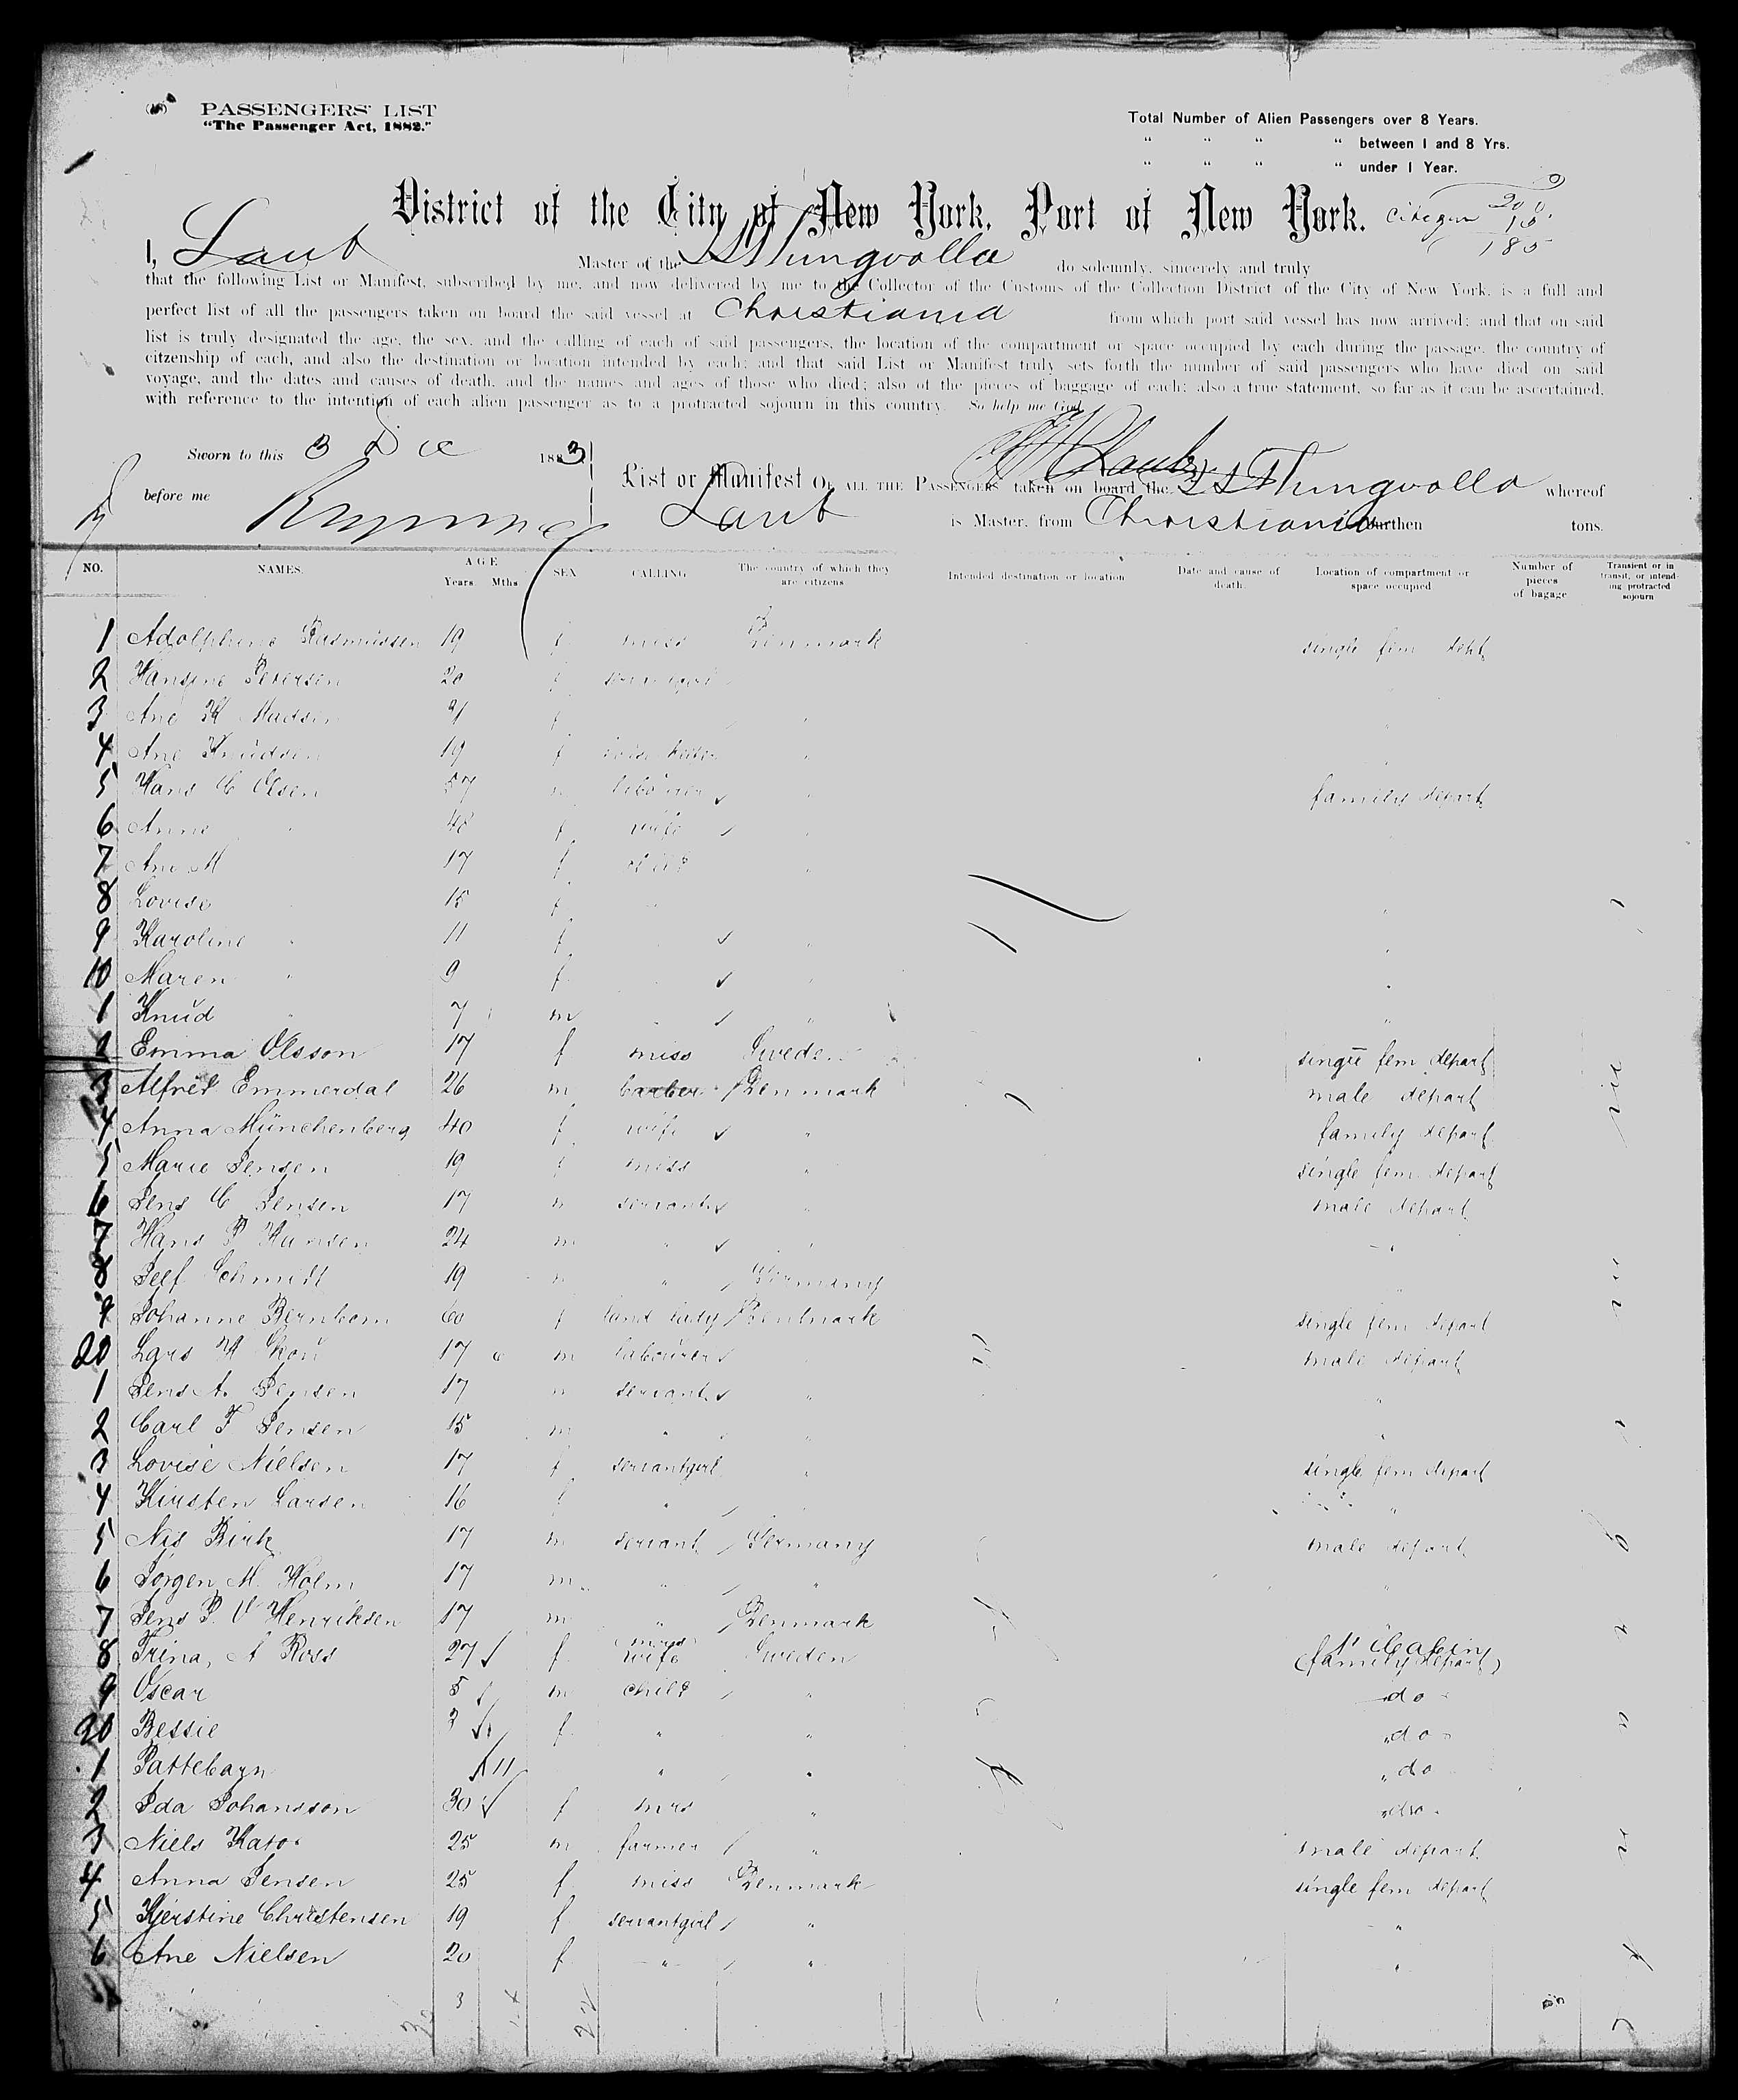 PASSENGERS' LIST
"The Passenger Act, 1882."
Total Number of Alien Passengers over 8 Years.
" " " " between 1 and 8 Yrs.
" " " " under 1 Year.
District of the City of New York, Port of New York.
Citizen
200
15
185
I, Laub Master of the SS Thingvalla do solemnly, sincerely and truly
that the following List or Manifest, subscribed by me, and now delivered by me to the Collector of the Customs of the Collection District of the City of New York, is a full and
perfect list of all the passengers taken on board the said vessel at Christiania from which port said vessel has now arrived; and that on said
list is truly designated the age, the sex, and the calling of each of said passengers, the location of the compartment or space occupied by each during the passage, the country of
citzenship of each, and also the destination or location intended by each; and that said List or Manifest truly sets forth the number of said passengers who have died on said
voyage, and the dates and causes of death, and the names and ages of those who died; also of the pieces of baggage of each; also a true statement, so far as it can be ascertained,
with reference to the intention of each alien passenger as to a protracted sojourn in this country. So help me God
Sworn to this 3 Dec 1883
before me
Laub
List or Manifest OF ALL THE PASSENGERS taken on board the SS Thingvalla whereof
Laub is Master, from Christiania burthen tons.
NO. NAMES. AGE Years. Mths SEX CALLING The country of which they are citizens Intended destination or location Date and cause of death. Location of compartment or space occupied Number of pieces of bagage Transient or in transit, or intending protracted sojourn
1 Adolphine Rasmussen 19 f miss Denmark single fem dept
2 Hansine Petersen 20 f servantgirl
3 Ane K Madsen 21 f "
4 Ane Knudsen 19 f "
5 Hans C Olsen 57 m labourer " family depart
6 Anne " 48 f wife "
7 Ane M 17 f child "
8 Lovise 15 f "
9 Karoline " 11 f " "
10 Maren " 9 f "
1 Knud " 7 m " "
2 Emma Olsson 17 f miss Sweden single fem depart
3 Alfred Emmerdal 26 m barber Denmark male depart
4 Anna Münchenberg 40 f wife " family depart
5 Marie Jensen 19 f miss " single fem depart
6 Jens C Jensen 17 m servant " male depart
7 Hans P Hansen 24 m " " "
8 Schmidt 19 m " Germany "
9 Johanne Bernbom 60 f land lady Denmark single fem depart
20 Lars H Skou 17 m labourer male depart
1 Jens A. Jensen 17 m servant " "
2 Carl F Jensen 15 m " " "
3 Lovise Nielsen 17 f servantgirl " single fem depart
4 Kirsten Larsen 16 f " "
5 Nis Birk 17 m servant Germany male depart
6 Jörgen M. Holm 17 m " " "
7 Jens P. V Henriksen 17 m " Denmark
8 Trina, A Ross 27 f mrs wife Sweden 1' Cabin (family depart)
9 Oscar 5 m child " do
30 Bessie 3 f " " do
1 Pattebarn 11 " " do
2 Ida Johansson 30 f mrs " do
3 Niels Kato 25 m farmer " male depart
4 Anna Jensen 25 f miss Denmark single fem depart
5 Kjerstine Christensen 19 f servantgirl " "
6 Ane Nielsen 20 f " " "
3